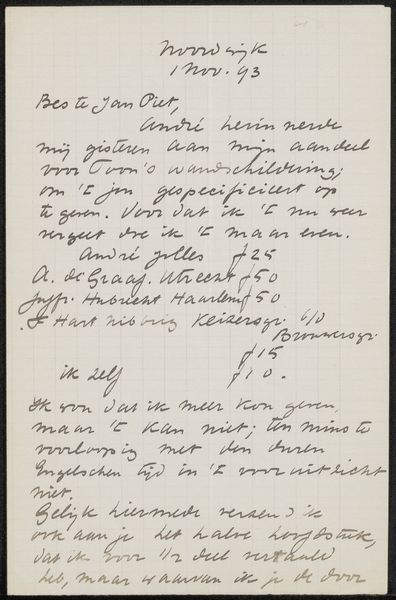 Noordwijk
1 Nov. 93
Beste Jan Piet,
André herinnerde
mij gisteren aan mijn aandeel
voor Toon's wandschildering;
om 't jou gespecificeert op
te geven. Voor dat ik 't nu weer
vergeet doe ik 't maar even.
André Jolles f 25
A. de Graaf. Utrecht f 50
Juffr. Hubrecht Haarlem f 50
't Hart Nibbrig Keizersgr. c/o
Brouwersgr.
f 15
ik zelf f 10.
Ik wou dat ik meer kon geven,
maar 't kan niet; ten minste
voorloopig met den duren
Engelschen tijd in 't vooruitzicht
niet.
Gelijk hiermede verzend ik
ook aan je het halve hoofdstuk,
dat ik voor 1/2 deel vertaald
heb, maar waarvan ik je de door